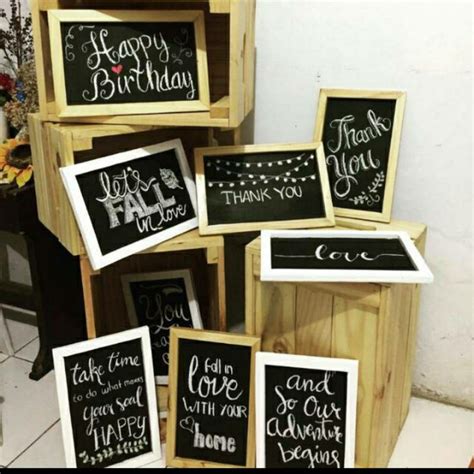 Happy
Birthday
let's
FALL
in love
THANK YOU
Thank
You
love
You
take time
to do what makes
your soul
HAPPY
fall in
love
WITH YOUR
home
and
so our
Adventure
begins